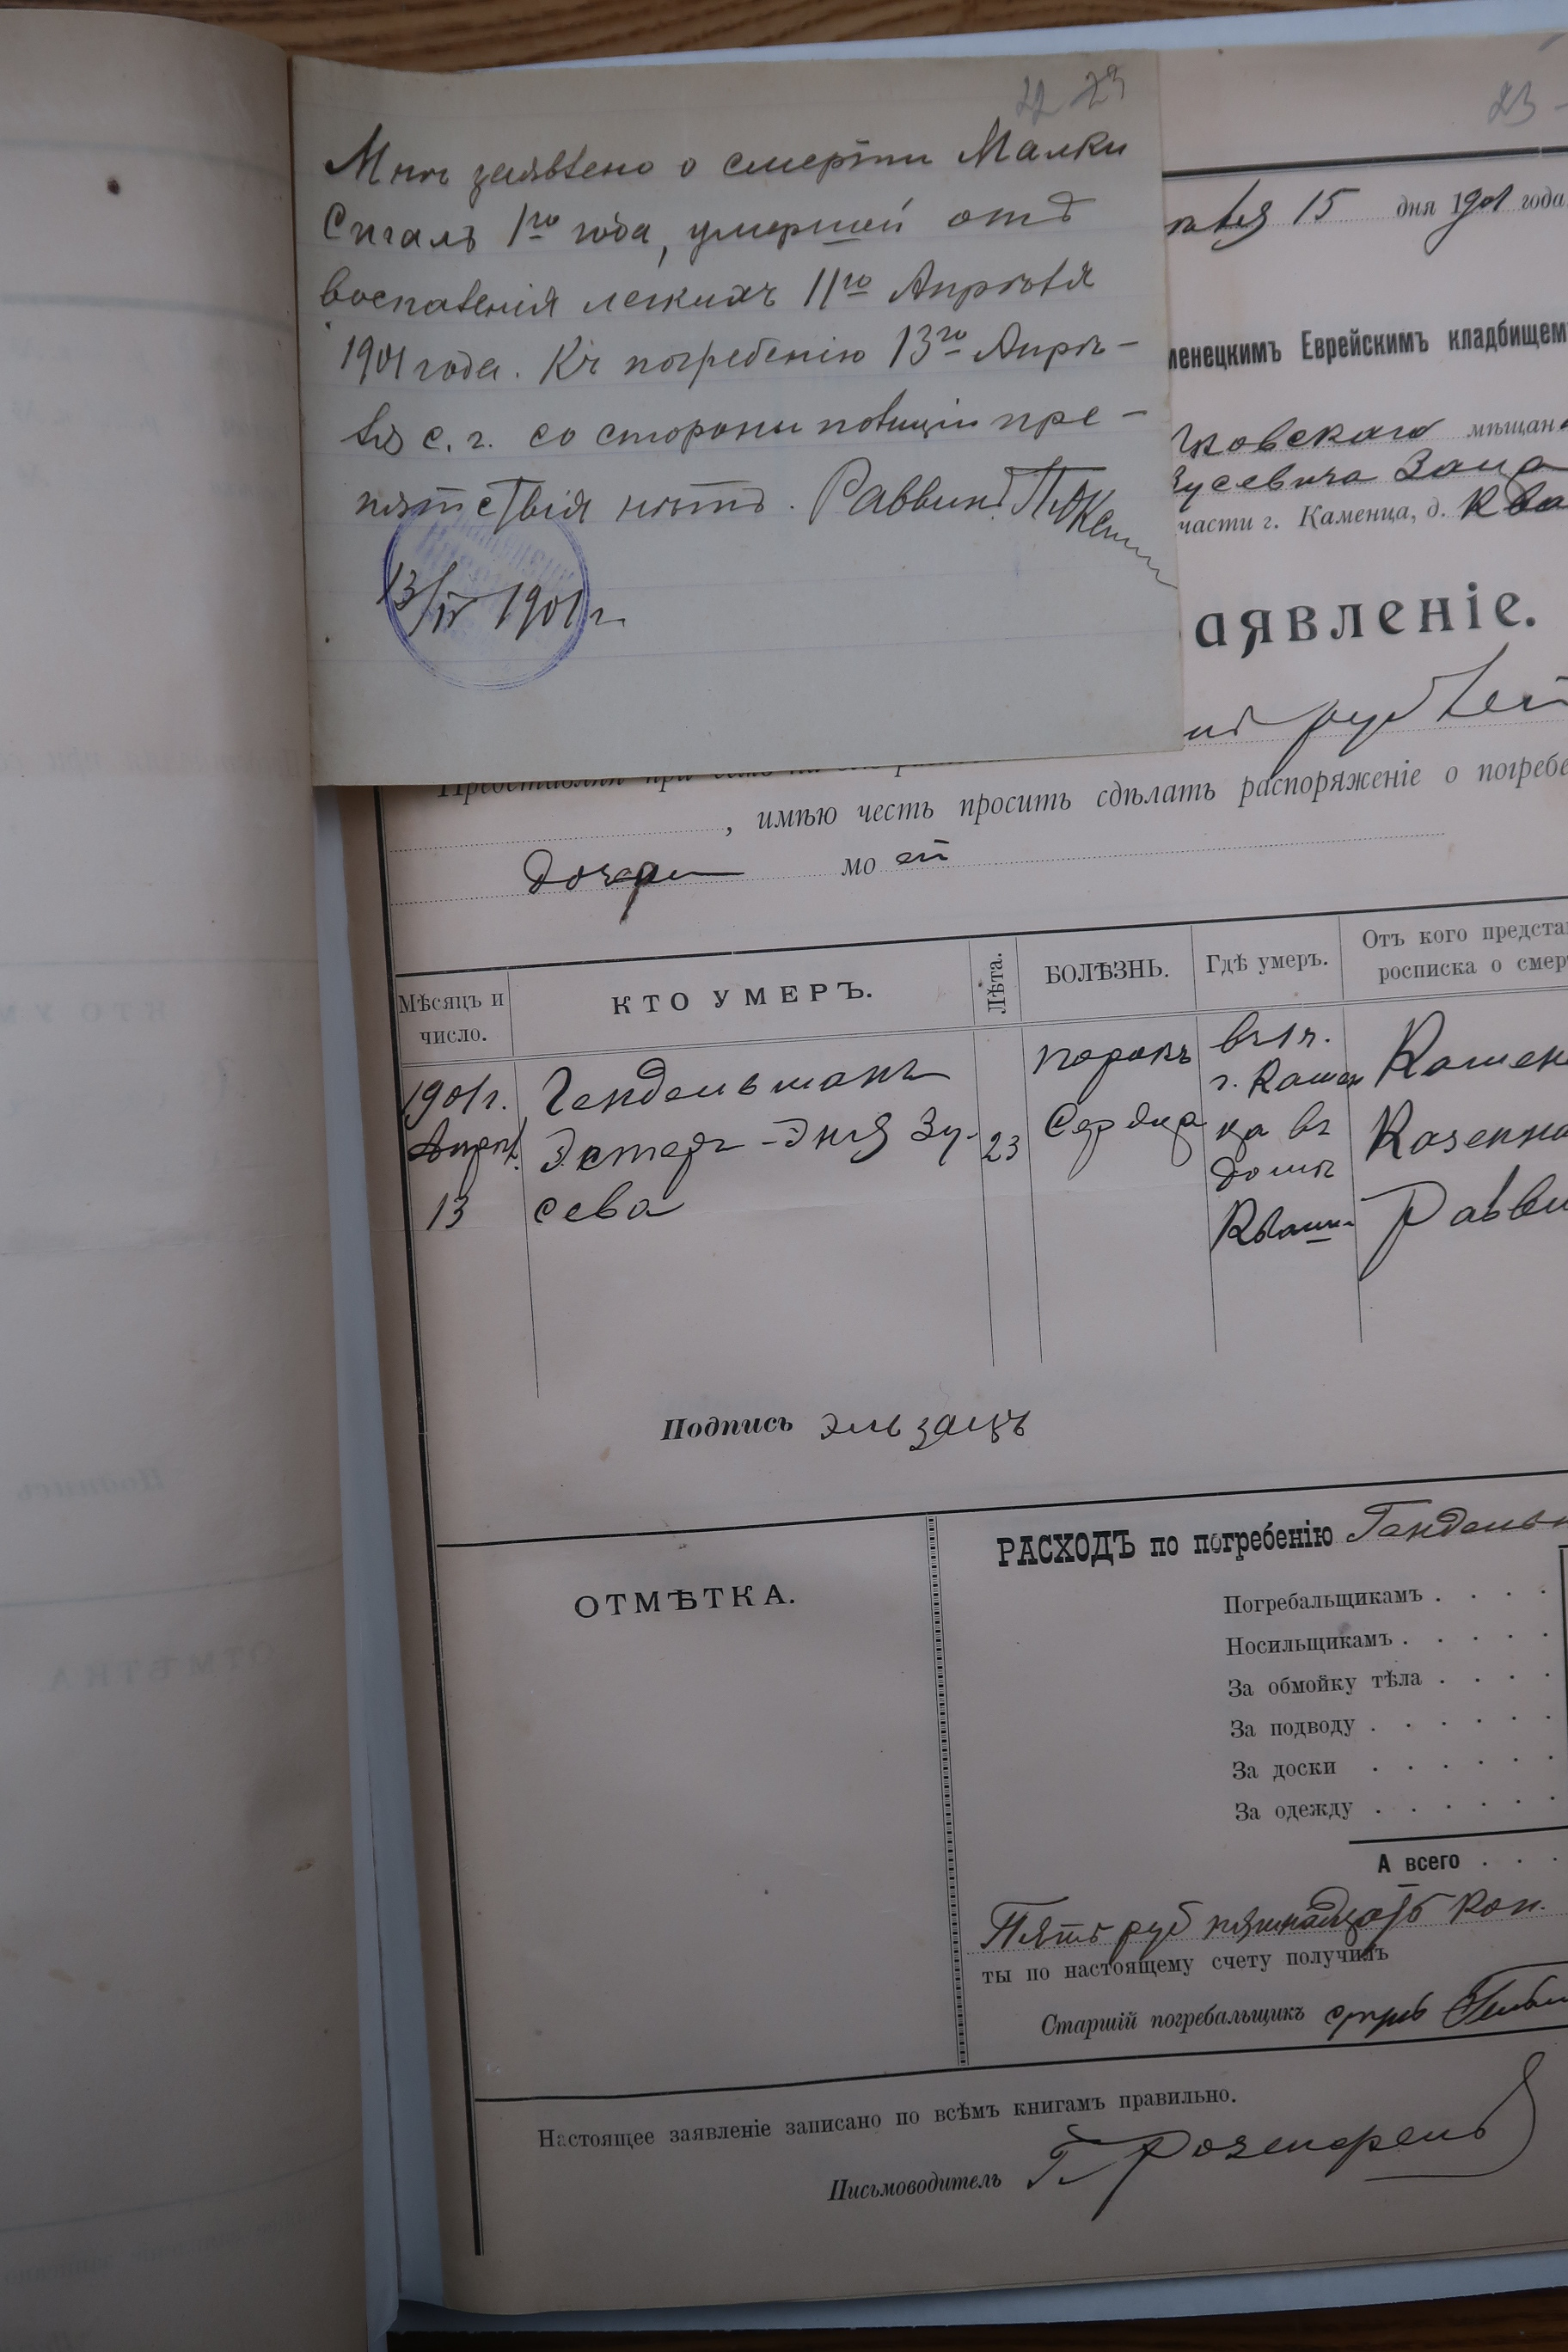 22 23
Мнѣ заявлено о смерти Малки
Сигалъ 1го года, умершей отъ
воспаленія легкихъ 11го Апрѣля
1901 года. Къ погребенію 13го Апрѣ-
ля с. г. со стороны полиціи пре-
пятствія нѣтъ. Раввинъ
13/IV 1901 г.
23
15 дня 1901 года
менецкимъ Еврейскимъ кладбищем
ковскаго мѣщан
Зусевича Заца
части г. Каменца, д. Ква
аявленіе.
рублей
, имѣю честь просить сдѣлать распоряженіе о погребе
дочери моей
Мѣсяцъ и число.
КТО УМЕРЪ.
Лѣта.
БОЛѢЗНЬ.
Гдѣ умеръ.
Отъ кого предста
росписка о смер
1901 г. Гендельманъ порокъ въ 1 ч. Камен
Апрѣл. Эстеръ-Энія Зу- 23 Сердца г. Камен Казенна
13 сева ца въ домѣ Равви
Квашн-
Подпись Эль Зацъ
ОТМѢТКА.
РАСХОДЪ по погребенію Гендель
Погребальщикамъ . . . .
Носильщикамъ . . . . .
За обмойку тѣла . . . .
За подводу . . . . . .
За доски . . . . . .
За одежду . . . . . .
А всего . . .
Пять руб пятнадцать коп.
ты по настоящему счету получилъ
Старшій погребальщикъ
Настоящее заявленіе записано по всѣмъ книгамъ правильно.
Письмоводитель Г. Розенфельд